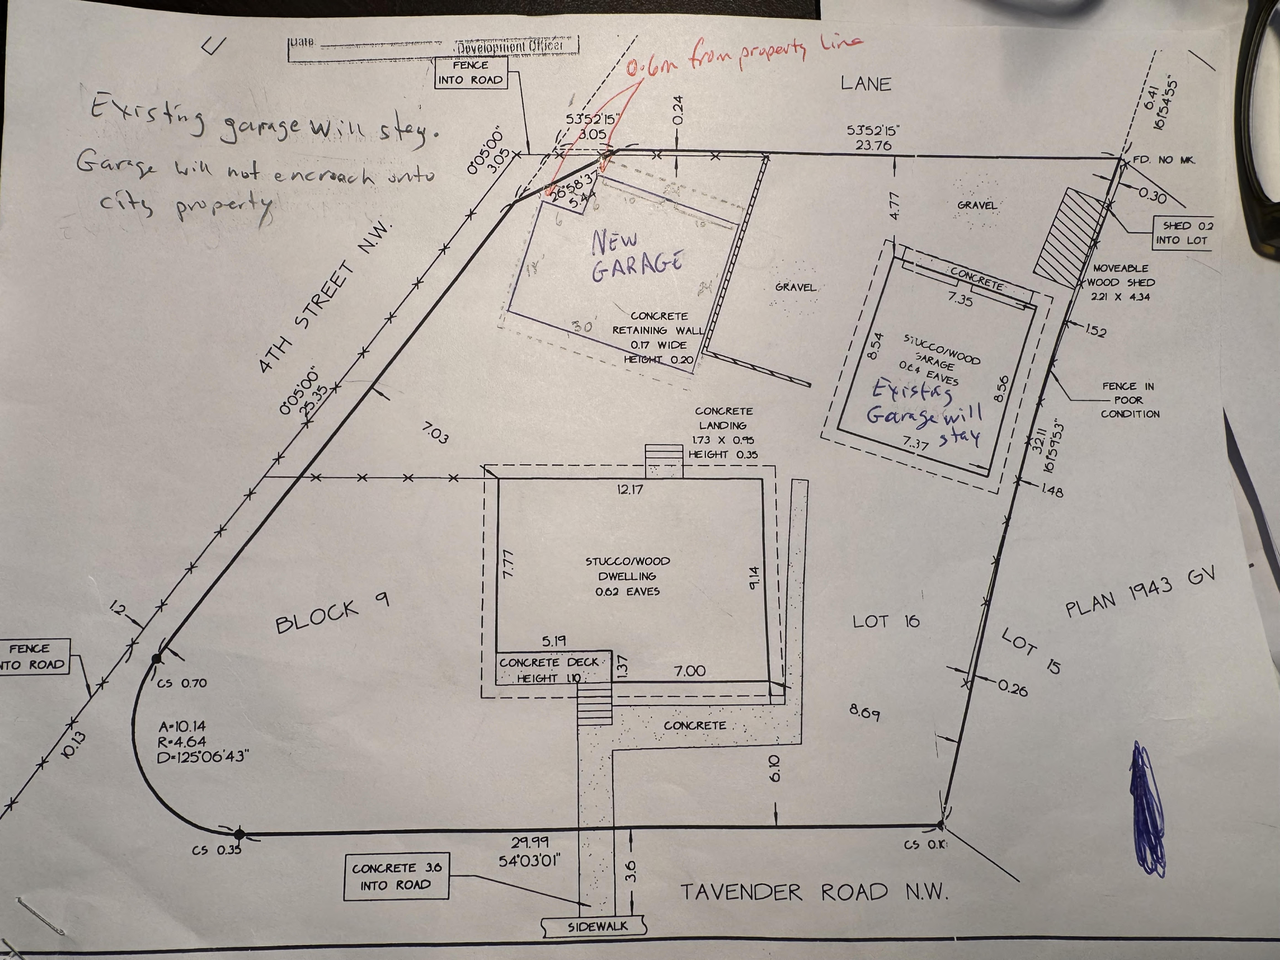 Date
Development Officer
FENCE
INTO ROAD
0.6m from property line
LANE
Existing garage will stay.
Garage will not encroach onto
city property
53°52'15"
3.05
0.24
53°52'15"
23.76
6.41
161°54'55"
0°05'00"
3.05
26°58'37"
5.44
FD. NO MK.
0.30
4.77
GRAVEL
SHED 0.2
INTO LOT
NEW
GARAGE
4TH STREET N.W.
GRAVEL
CONCRETE
7.35
MOVEABLE
WOOD SHED
2.21 X 4.34
30'
CONCRETE
RETAINING WALL
0.17 WIDE
HEIGHT 0.20
8.54
STUCCO/WOOD
GARAGE
0.64 EAVES
8.56
1.52
Existing
Garage will
stay
7.37
FENCE IN
POOR
CONDITION
0°05'00"
25.35
7.03
CONCRETE
LANDING
1.73 X 0.95
HEIGHT 0.35
32.11
161°59'53"
1.48
12.17
7.77
STUCCO/WOOD
DWELLING
0.62 EAVES
9.14
PLAN 1943 GV
1.2
BLOCK 9
LOT 16
LOT 15
5.19
FENCE
NTO ROAD
CONCRETE DECK
HEIGHT 1.10
1.37
7.00
0.26
CS 0.70
8.69
A=10.14
R=4.64
D=125°06'43"
CONCRETE
10.13
6.10
CS 0.35
29.99
54°03'01"
CS 0.1
CONCRETE 3.6
INTO ROAD
3.6
TAVENDER ROAD N.W.
SIDEWALK